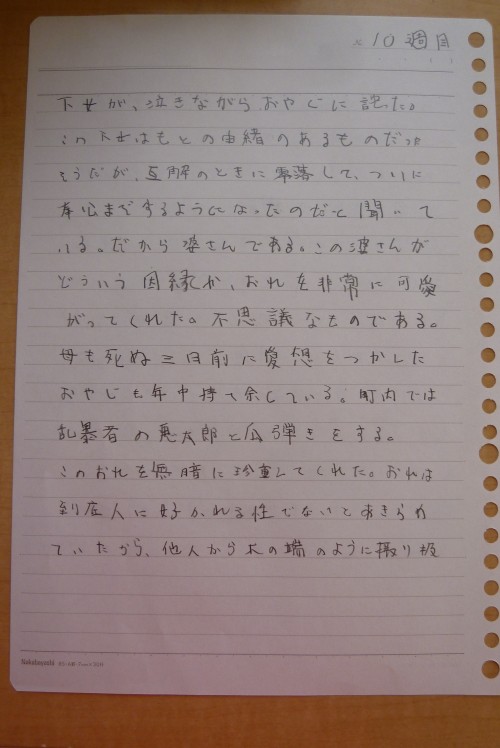 ×10週目
下女が、泣きながらおやじに詫った。
この下女はもとの由緒のあるものだった
そうだが、瓦解のときに零落して、ついに
奉公までするようになったのだと聞いて
いる。だから婆さんである。この婆さんが
どういう因縁か、おれを非常に可愛
がってくれた。不思議なものである。
母も死ぬ三日前に愛想をつかした
おやじも年中持て余している。町内では
乱暴者の悪太郎と爪弾きをする。
このおれを無暗に珍重してくれた。おれは
到底人に好かれる性でないとあきらめ
ていたから、他人から木の端のように取り扱
Nakabayashi